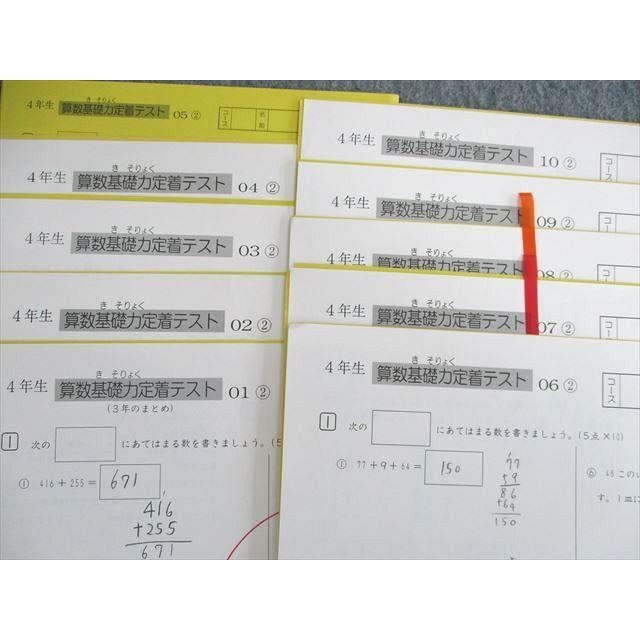 4年生 算数基礎力定着テスト 05②
き そりょく
コース
名前
4年生 算数基礎力定着テスト 04②
き そりょく
4年生 算数基礎力定着テスト 03②
き そりょく
4年生 算数基礎力定着テスト 02②
き そりょく
4年生 算数基礎力定着テスト 01②
き そりょく
(3年のまとめ)
1 次の にあてはまる数を書きましょう。(5
① 416+255= 671
416
+255
671
4年生 算数基礎力定着テスト 10②
き そりょく
コース
4年生 算数基礎力定着テスト 09②
き そりょく
コース
4年生 算数基礎力定着テスト 08②
き そりょく
コース
4年生 算数基礎力定着テスト 07②
き そりょく
コース
4年生 算数基礎力定着テスト 06②
き そりょく
コース
1 次の にあてはまる数を書きましょう。(5点×10)
① 77+9+64= 150
77
86
+64
150
⑥ 48このい
す。1皿に